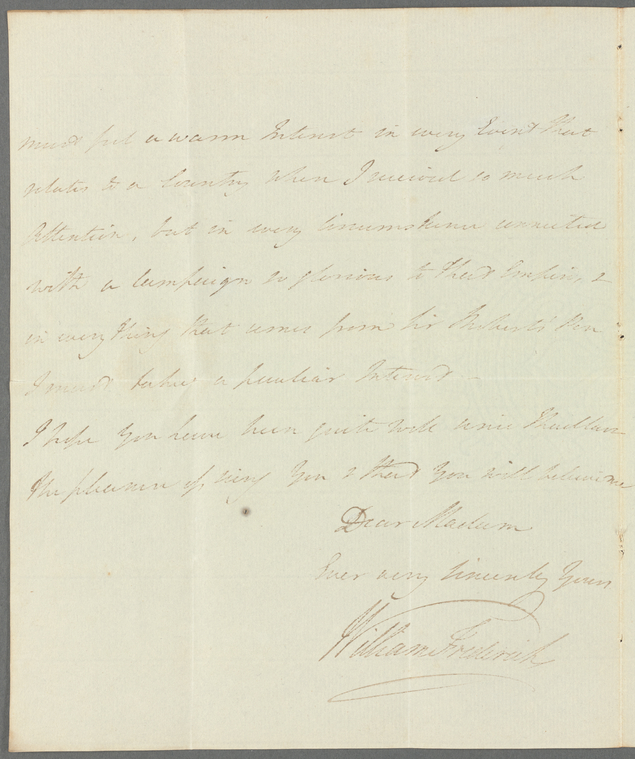 must feel a warm Interest in every Event that
relates to a Country where I received so much
Attention, but in every Circumstance connected
with a Campaign so glorious to that Empire, &
in every thing that comes from Sir Robert's Pen
I must take a peculiar Interest –
I hope you have been quite well since I had last
the pleasure of seing You & that You will believe me
Dear Madam
Ever very Sincerely Yours
William Frederick